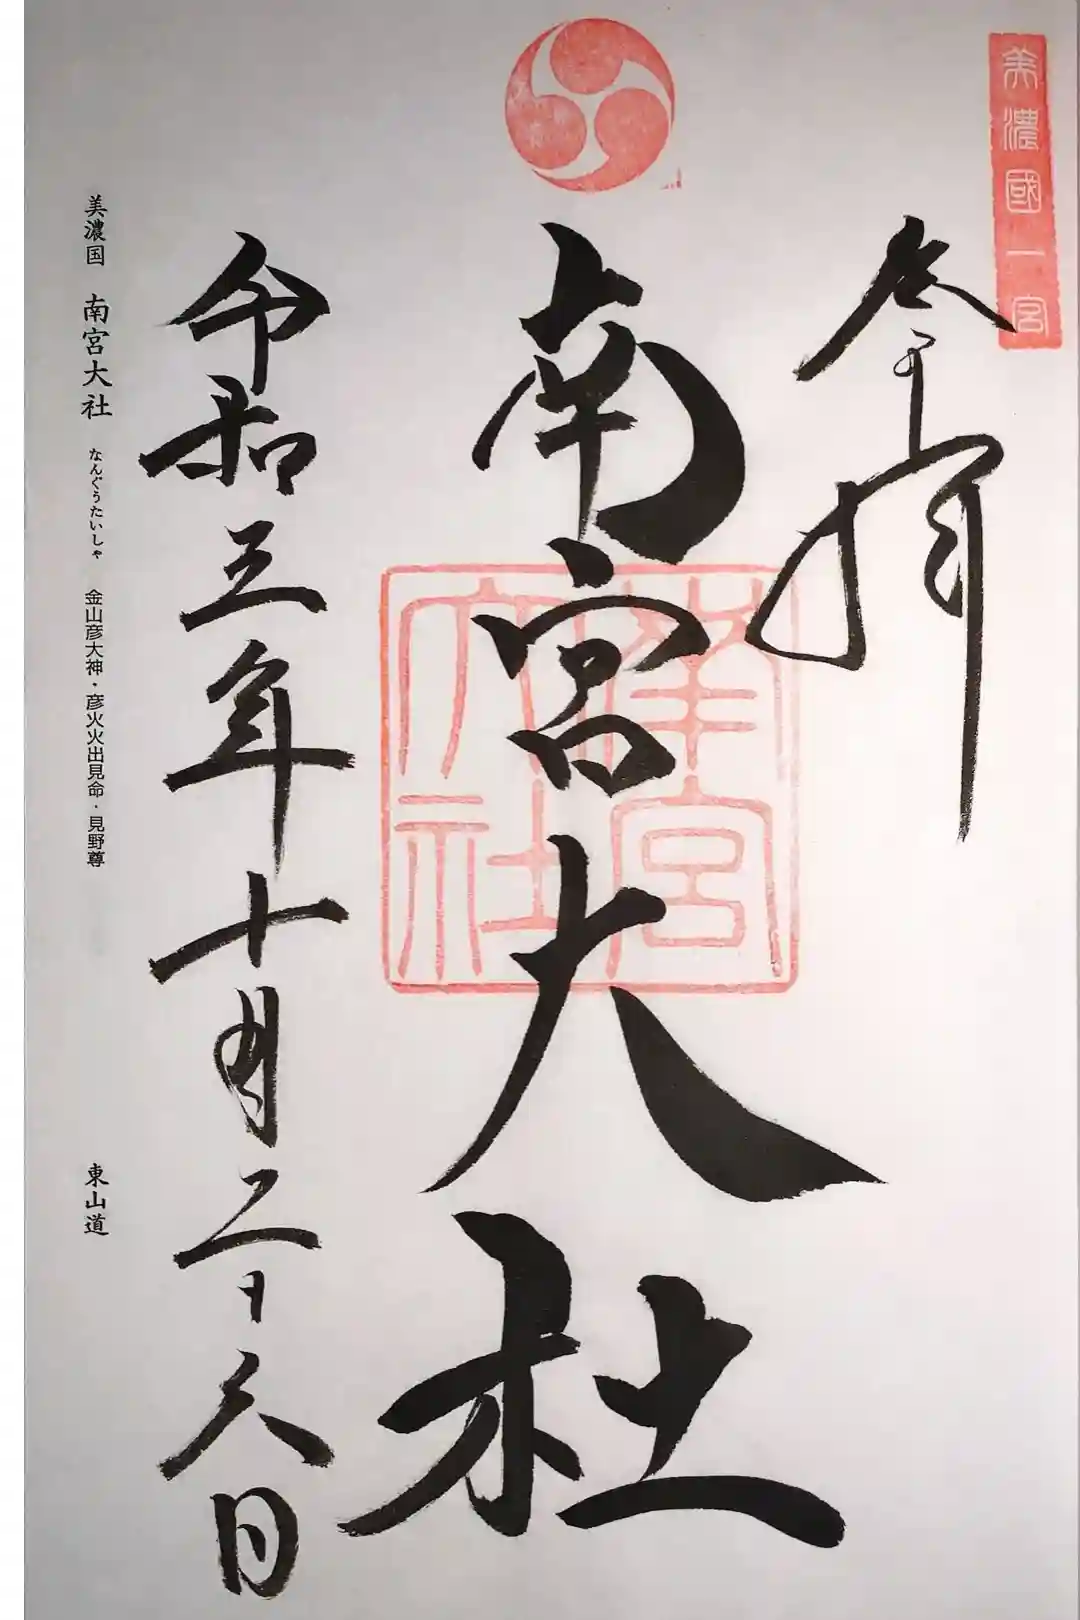 美濃國一宮
奉拝
南宮大社
南宮大社
令和三年十月二十六日
美濃国 南宮大社 なんぐうたいしゃ 金山彦大神・彦火火出見命・見野尊 東山道